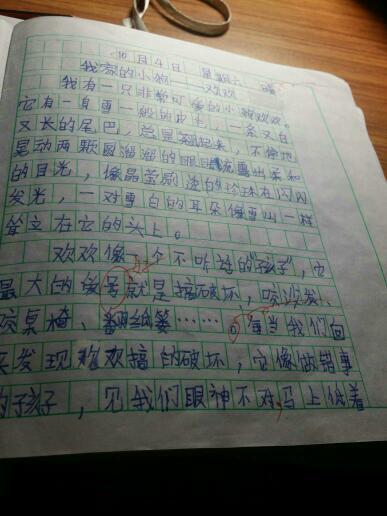 10月4日 星期六 晴
我家的小狗——欢欢
我有一只非常可爱的小狗欢欢。
它有一身雪一般的皮毛,一条又白
又长的尾巴,总是翘起来,不停地
晃动两颗圆溜溜的眼睛流露出柔和
的目光,像晶莹剔透的珍珠在闪闪
发光,一对雪白的耳朵像雪山一样
耸立在它的头上。
欢欢像个不听话的"孩子",它
最大的爱好就是搞破坏,咬沙发、
咬桌椅、翻纸篓……。每当我们回
来发现欢欢搞的破坏,它像做错事
的孩子,见我们眼神不对,马上低着